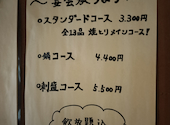 ●スタンダードコース 3.300円
全13品 焼とりメインコース!
●鍋コース 4.400円
コース 5.500円
飲放題込